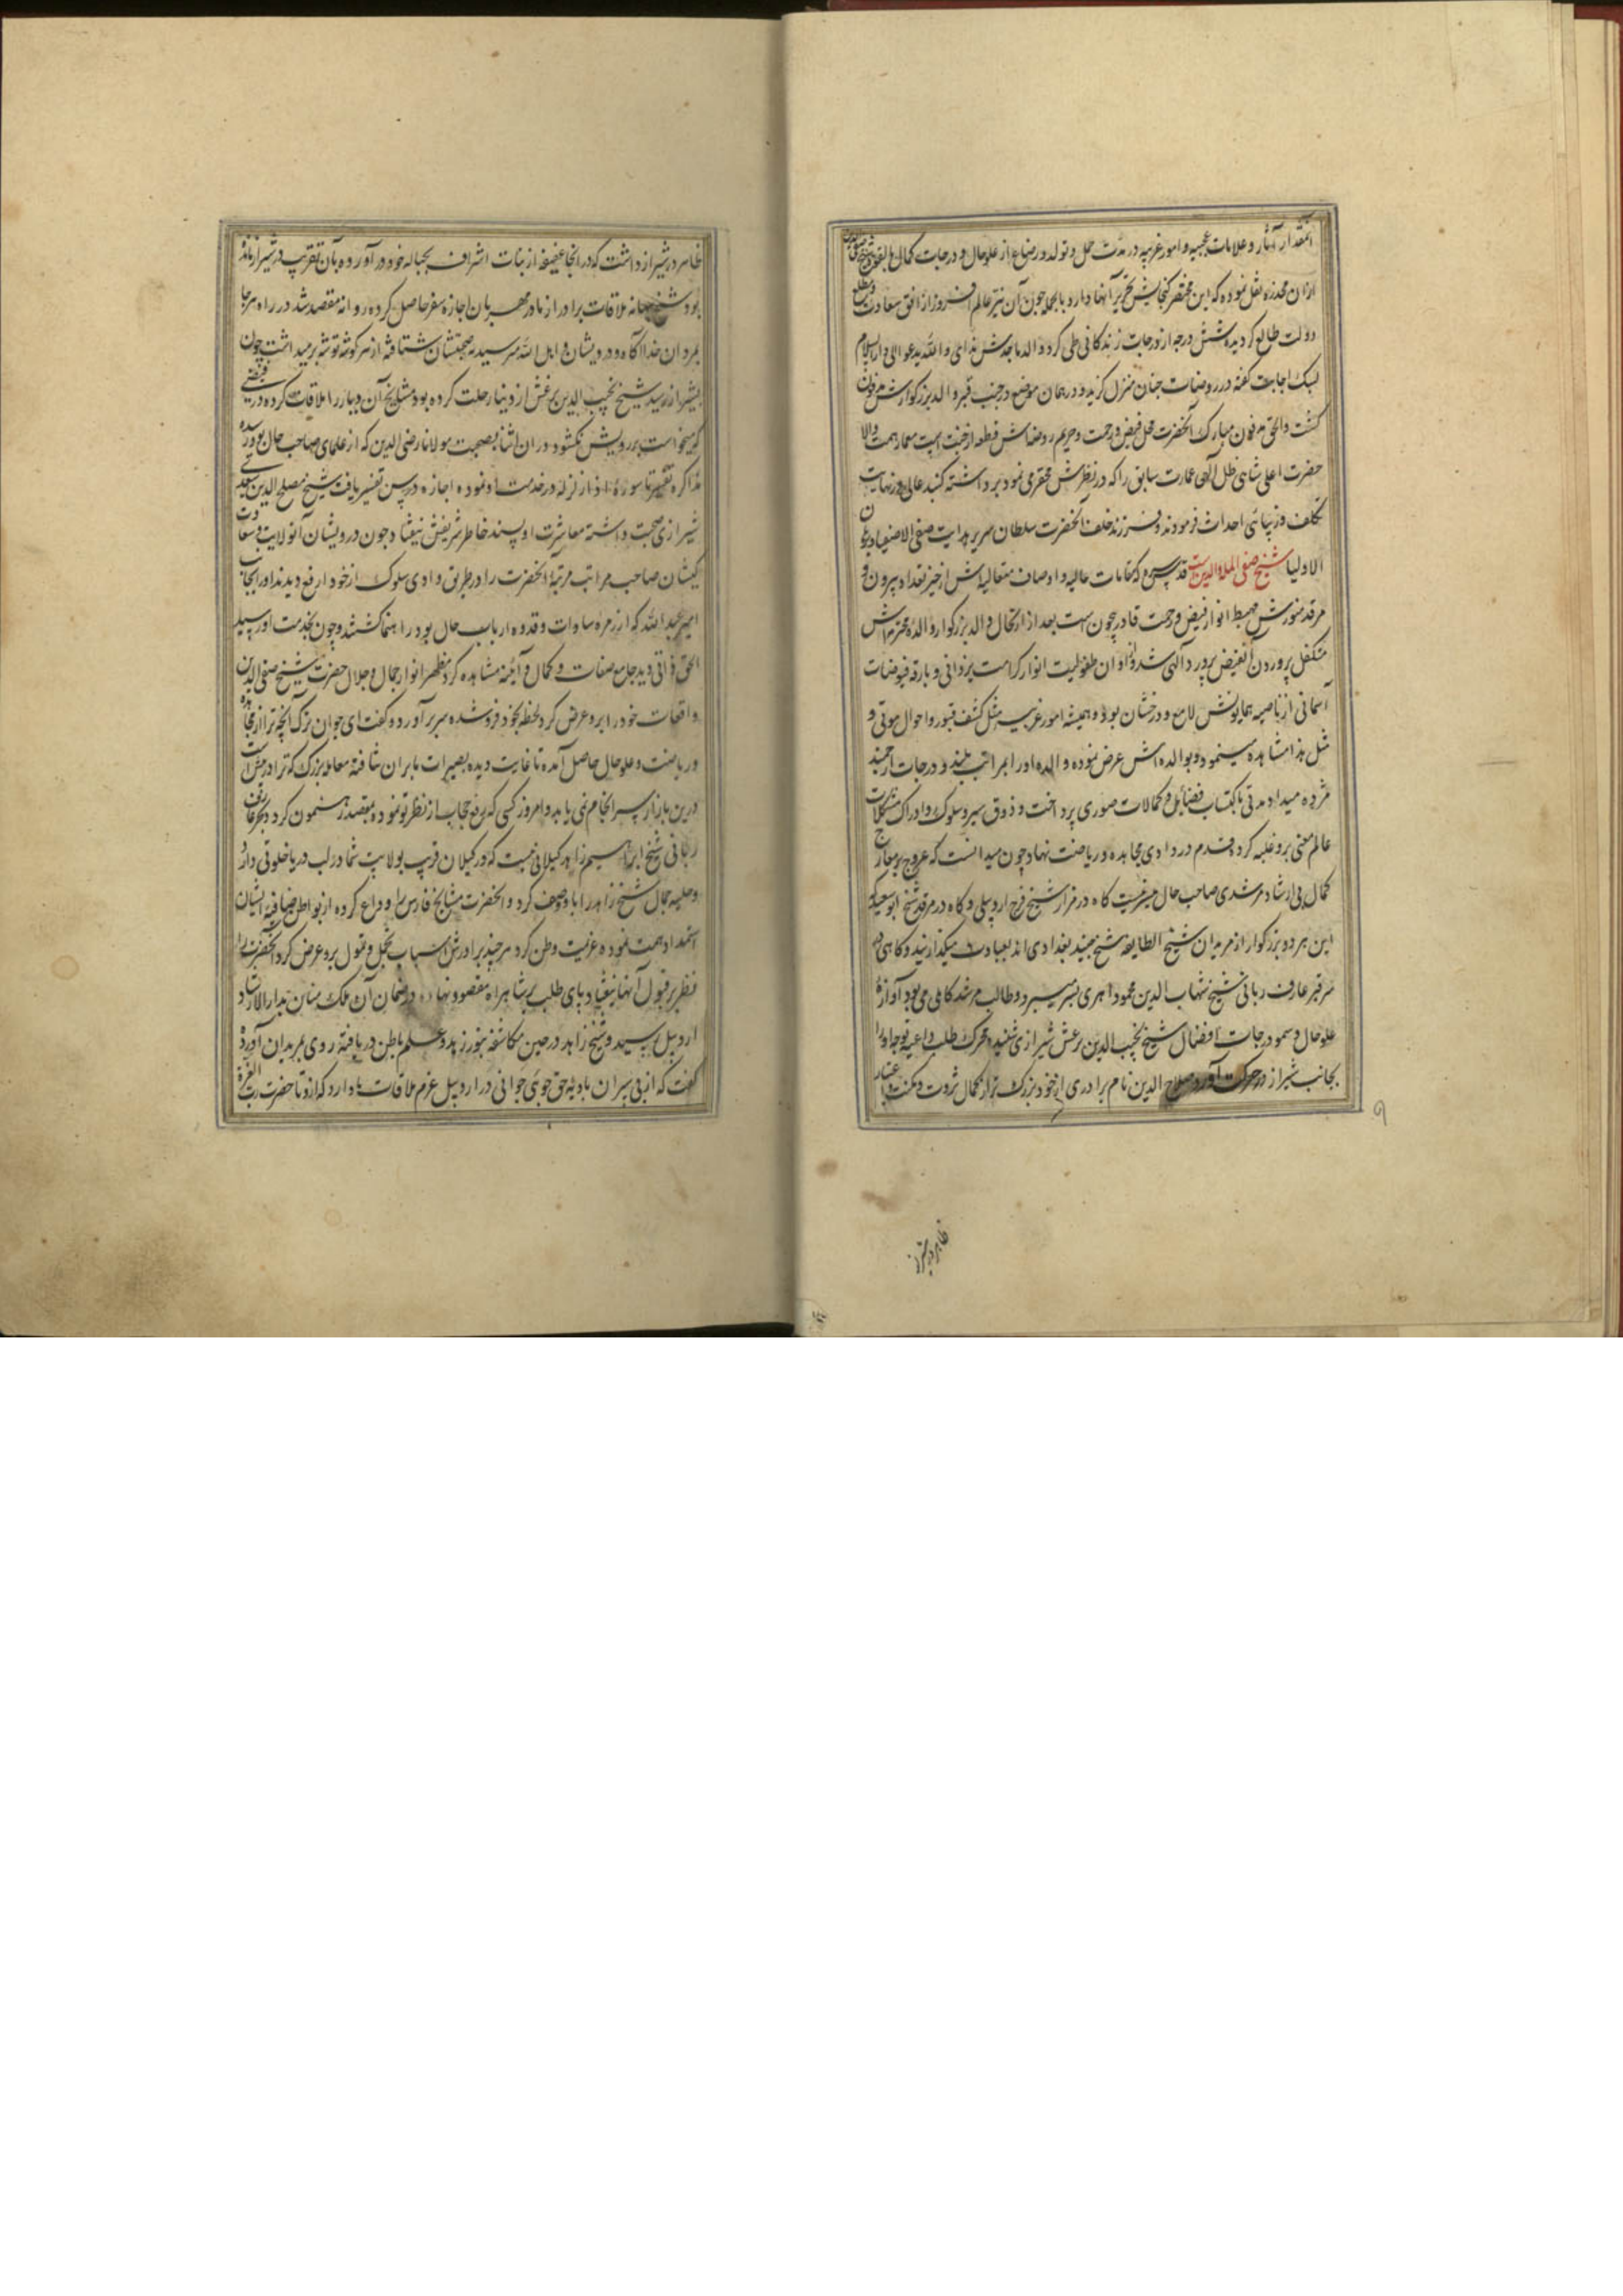 آنمقدار آثار و علامات عجیبه و امور غریبه در مدت حمل و تولد و رضاع از علو حال و درجات کمال
ازان مخدره نقل نموده که این مختصر گنجایش تحریر آنها ندارد بالجمله چون آن نیر عالم افروز از افق سعادت و مطلع
دولت طالع گردید شش درجه از درجات زندگانی طی کرد والد ماجدش ندای والله یدعوا الی دارالسلام
لبیک اجابت گفته در روضات جنان منزل گزید و در همان موضع در جنب قبر والد بزرگوارش مدفون
گشت والحق مدفون مبارک آنحضرت محل فیض و رحمت و حریم روضه‌اش قطعه از جنت است معمار همت والا
حضرت اعلی شاهی ظل الهی عمارت سابق را که در نظرش محقر می نمود برداشته گنبد عالی در نهایت
تکلف و زیبائی احداث فرمودند و فرزند خلف آنحضرت سلطان سریر هدایت صفی الاصفیا و برهان
الاولیا شیخ صفی الملة والدین است قدس سره که مقامات عالیه و اوصاف متعالیه‌اش از حیز تعداد بیرون و
مرقد منورش مهبط انوار فیض و رحمت قادر بیچون است بعد از ارتحال والد بزرگوار والده محترمه‌اش
متکفل پروردن آنفیض پرورد الهی شد و از اوان طفولیت انوار کرامت یزدانی و بارقه فیوضات
آسمانی از ناصیه همایونش لامع و درخشان بود و همیشه امور غریبه مثل کشف قبور و احوال موتی و
مثل هذا مشاهده مینمود و بوالده اش عرض نموده والده او را بمراتب بلند و درجات ارجمند
مژده میداد مدتی باکتساب فضایل و کمالات صوری پرداخت و ذوق سیر و سلوک و ادراک مشکلات
عالم معنی برو غلبه کرد قدم در وادی مجاهده و ریاضت نهاد چون میدانست که عروج بر معارج
کمال بی ارشاد مرشدی صاحب حال میسر نیست گاه در مزار شیخ فرج اردبیلی و گاه در مرقد شیخ ابو سعید که
این هر دو بزرگوار از مریدان شیخ الطایفه شیخ جنید بغدادی اند بعبادت میگذرانید و گاهی در
سر قبر عارف ربانی شیخ شهاب الدین محمود اهری بسر میبرد و طالب مرشد کامل می بود آوازه
علو حال و سمو درجات افضال شیخ نجیب الدین برغش شیرازی شنید محرک طلب داعیه توجه او را
بجانب شیراز در حرکت آورد صلاح الدین نام برادری از خود بزرگ تر از کمال ثروت و مکنت و اعتبار
ظاهر در شیراز
ظاهر در شیراز داشت که در آنجا عفیفه از بنات اشراف بحباله خود در آورده بآن تقریب در شیراز مانده
بود شیخ ببهانه ملاقات برادر از مادر مهربان اجازه سفر حاصل کرده روانه مقصد شد در راه هر جا
بمردان خدا آگاه و درویشان و اهل الله میرسید بصحبتشان شتافته از هر گوشه توشه برمیداشت چون
بشیراز رسید شیخ نجیب الدین برغش از دنیا رحلت کرده بود مشایخ آن دیار را ملاقات کرده در فیضی
که میخواست برویش نگشود در ان اثنا بصحبت مولانا رضی الدین که از علمای صاحب حال بود رسیده
مذاکره تفسیر تا سوره اذا زلزله در خدمت او نموده اجازه درس تفسیر یافت شیخ مصلح الدین سعدی
شیرازی صحبت داشته معاشرت او پسند خاطر شریفش نیفتاد چون درویشان آنولایت و سعادت
کیشان صاحب مراتب مرتبه آنحضرت را در طریق وادی سلوک از خود ارفع دیدند او را بجانب
امیر عبدالله که از زمره سادات و قدوه ارباب حال بود راهنما گشتند و چون بخدمت او رسید
الحق ذاتی دید جامع صفات و کمال و آئینه مشاهده کرد مظهر انوار جمال و جلال حضرت شیخ صفی الدین
واقعات خود را برو عرض کرد لحظه بخود فرو شده سر برآورد و گفت ای جوان ترک آنچه ترا از مجاهده
و ریاضت و علو حال حاصل آمده تا غایت دیده بصیرت ما بران نتافته معامله بزرگ که ترا در میان است
درین بازار سرانجام نمی یابد و امروز کسی که رفع حجاب از نظر تو نموده بمقصد رهنمون گردد بجز عارف
ربانی شیخ ابراهیم زاهد گیلانی نیست که در گیلان قریب بولایت شما در لب دریا خلوتی دارد
و حلیه جمال شیخ زاهد را باو وصف کرد و آنحضرت مشایخ فارس را وداع کرده از بواطن صافیه ایشان
استمداد همت نموده عزیمت وطن کرد هر چند برادرش اسباب تجمل و تمول برو عرض کرد آنحضرت را
نظر بر قبول آنها نیفتاد پای طلب بر شاهراه مقصود نهاده
اردبیل رسید و شیخ زاهد در حین مکاشفه بنور زهد و علم باطن دریافته روی بمریدان آورده
گفت که از بی سران بادیه حق جوئی جوانی در اردبیل عزم ملاقات ما دارد که ازو تا حضرت رب العزة